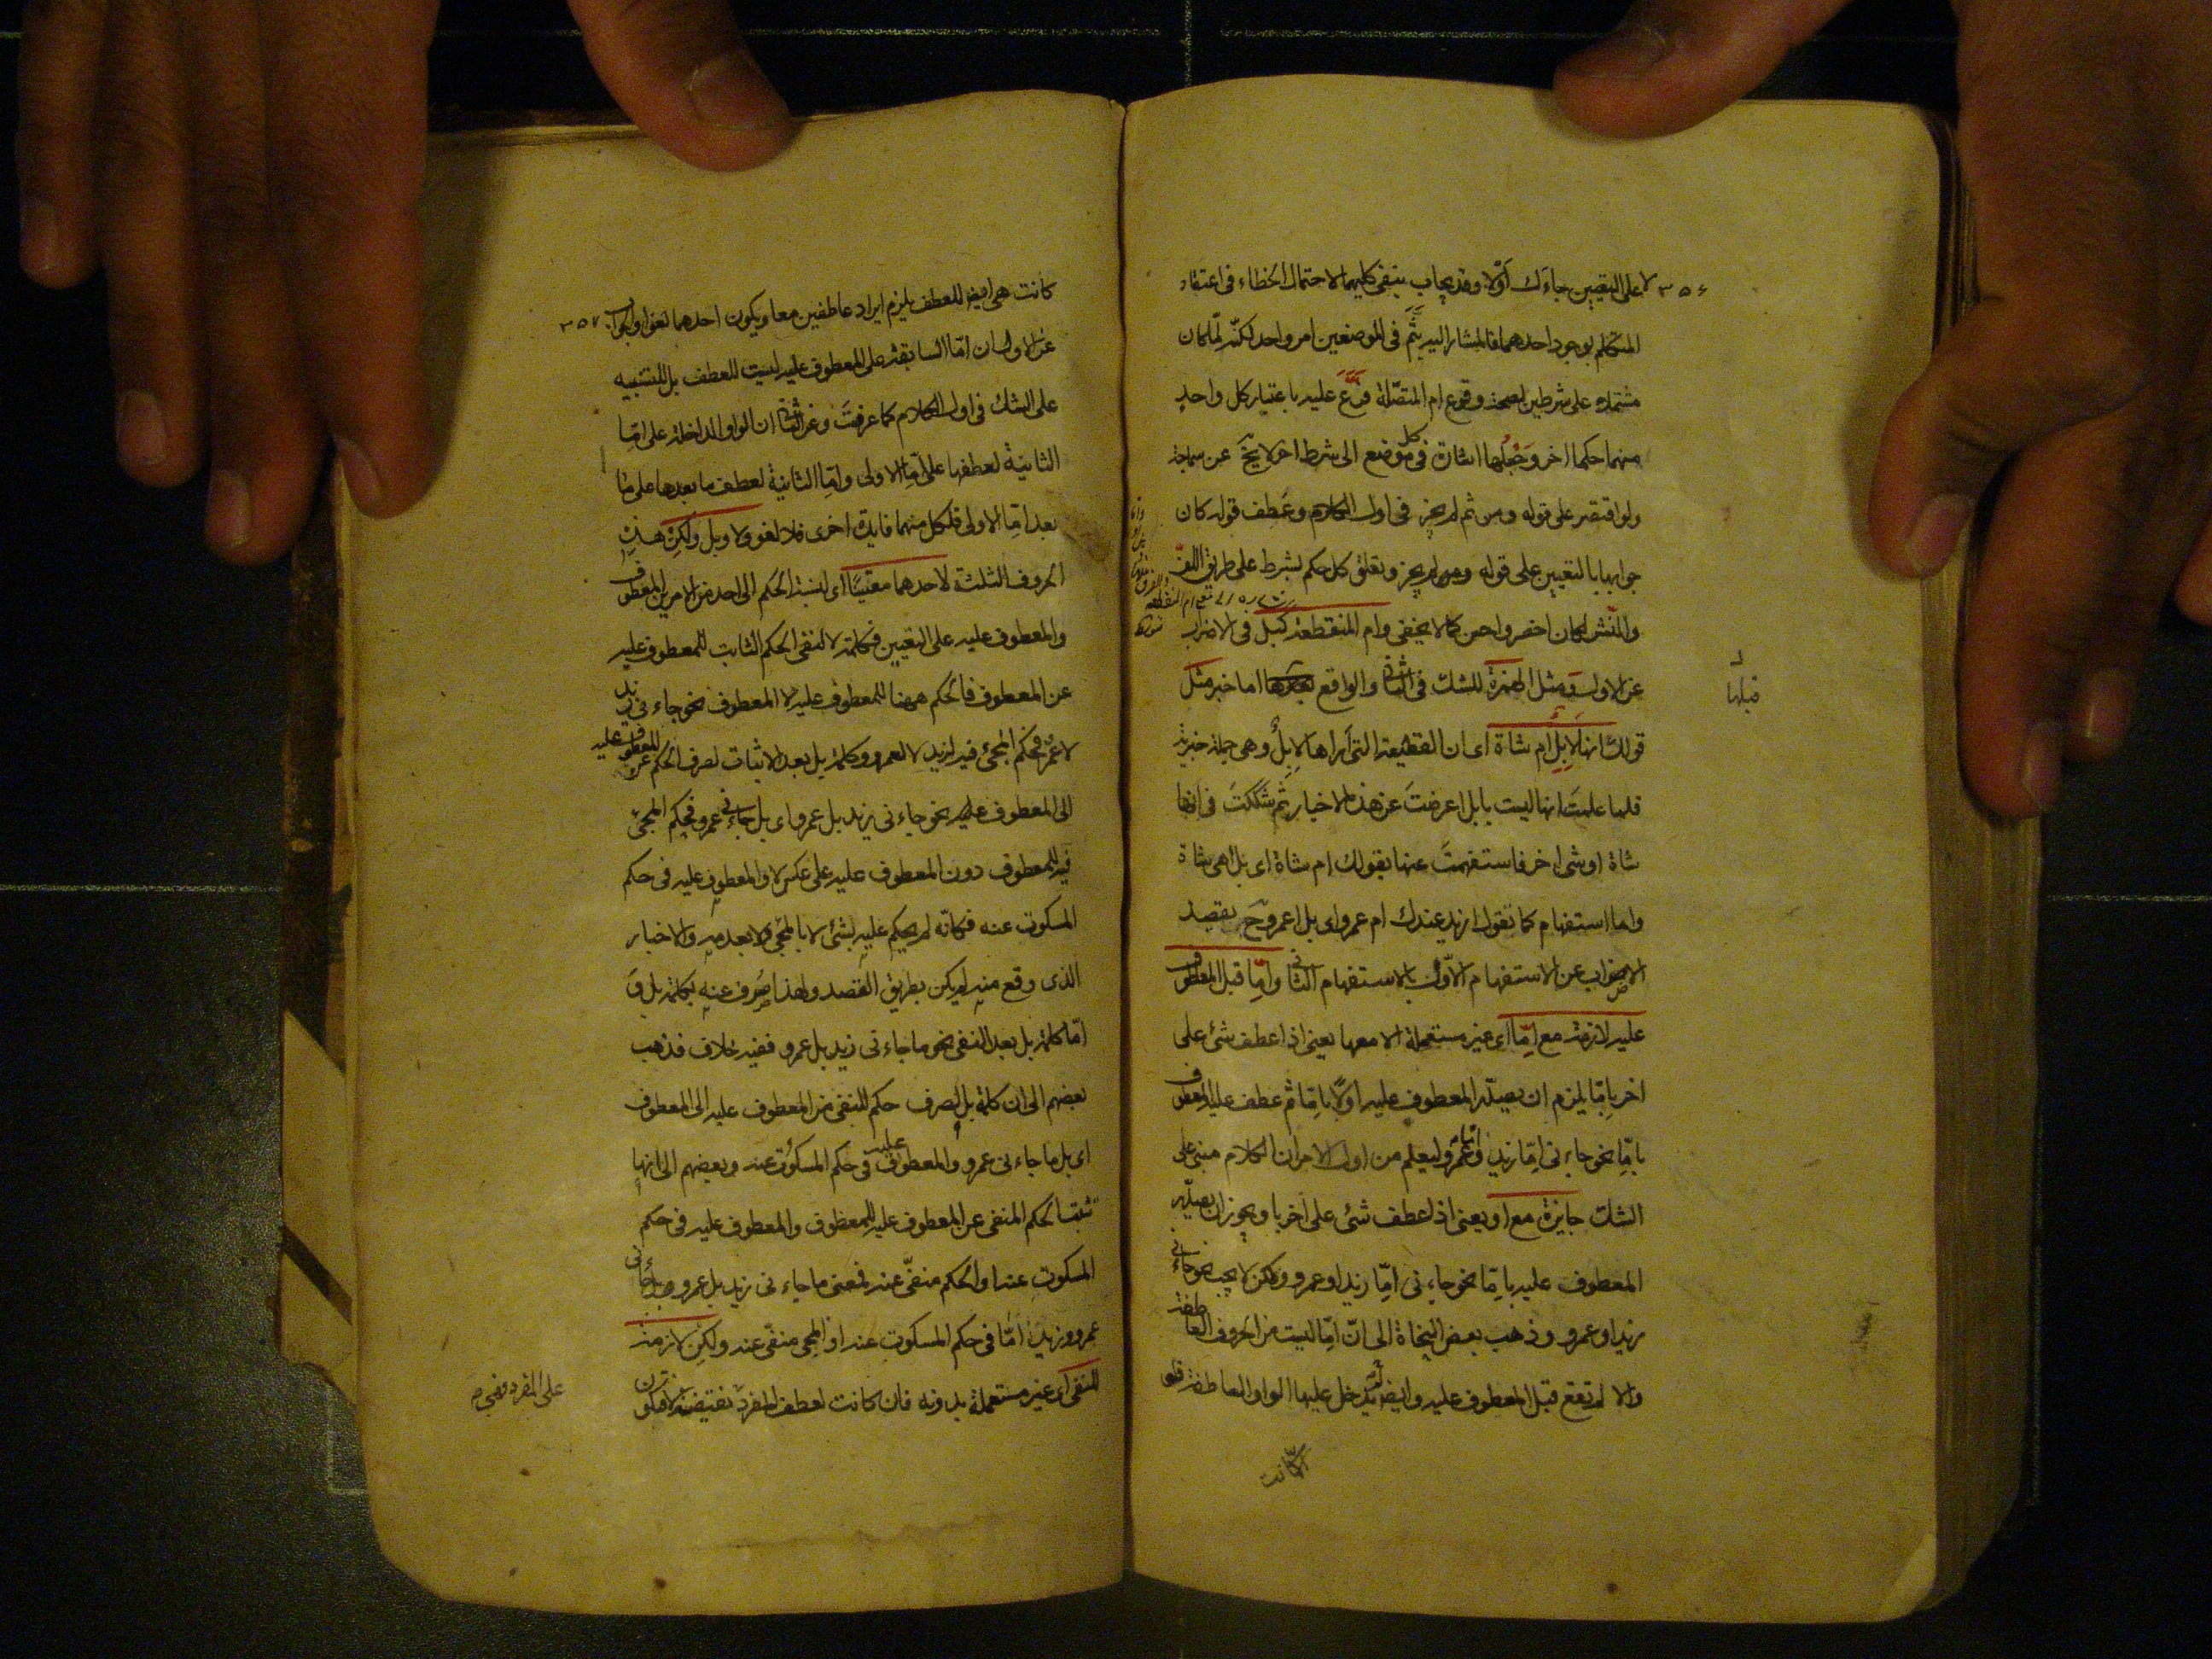 ٣٥٦
لا على التعيين جاءك اولا وقد يجاب بنفى كليهما لاحتمال الخطاء فى اعتقاد
المتكلم بوجود احدهما فالمشار اليه بثم فى الموضعين امر واحد لكنه لما كان
مشتملا على شرطين لصحة وقوع ام المتصلة فرع عليه باعتبار كل واحد
منهما حكما اخر وجعلها اشارة فى كل موضع الى شرط اخر لا يخ عن سماجة
ولو اقتصر على قوله ومن ثم لم يجز فى اول الكلام وعطف قوله كان
جوابها بالتعيين على قوله لم يجز وتعلق كل حكم بشرط على طريق اللف
والنشر لكان اخصر واحسن كما لا يخفى وام المنقطعة كبل فى الاضراب
عن الاول ومثل الهمزة للشك فى الثانى والواقع اما خبر مثل
قبلها
قولك انها لابل ام شاة اى ان القطيعة التى اراها لابل وهى جملة خبرية
فلما علمت انها ليست بابل اعرضت عن هذا الاخبار ثم شككت فى انها
شاة او شئ اخر فاستفهمت عنها بقولك ام شاة اى بل اهى شاة
واما استفهام كما تقول ازيد عندك ام عمرو اى بل اعمرو ح بقصد
الاضراب عن الاستفهام الاول بالاستفهام الثانى واما قبل المعطوف
عليه لازمة مع اما اى غير مستعملة الا معها يعنى اذا عطف شئ على
اخر باما يلزم ان يصدر المعطوف عليه اولا باما ثم عطف عليه المعطوف
باما نحو جاءنى اما زيد واما عمرو ليعلم من اول الامر ان الكلام مبنى على
الشك جايزة مع او يعنى اذا عطف شئ على اخر باو يجوز ان يصدر
المعطوف عليه باما نحو جاءنى اما زيد او عمرو ولكن لا يجب نحو جاءنى
زيد او عمرو وذهب بعض النحاة الى ان اما ليست من الحروف العاطفة
والا لم تقع قبل المعطوف عليه وايضا يدخل عليها الواو العاطفة فلو
كانت
٣٥٧
كانت هى ايض للعطف يلزم ايراد عاطفين معا ويكون احدهما لغوا والجواب
عن الاول ان اما السابقة على المعطوف عليه ليست للعطف بل للتنبيه
على الشك فى اول الكلام كما عرفت وعن الثانى ان الواو الداخلة على اما
الثانية لعطفها على اما الاولى واما الثانية لعطف ما بعدها على ما
بعد اما الاولى فلكل منهما فايدة اخرى فلا لغو ولا وبل ولكن هذه
الحروف الثلثة لاحدهما معينا اى لنسبة الحكم الى احد من الامرين المعطوف
والمعطوف عليه على التعيين فكلمة لا لنفى الحكم الثابت للمعطوف عليه
عن المعطوف فالحكم ههنا للمعطوف عليه لا المعطوف نحو جاءنى زيد
لا عمرو فحكم المجئ فيه لزيد لا لعمرو وكلمة بل بعد الاثبات لصرف الحكم عن المعطوف عليه
الى المعطوف عليه نحو جاءنى زيد بل عمرو اى بل جاءنى عمرو فحكم المجئ
فيه للمعطوف دون المعطوف عليه على عكس لا والمعطوف عليه فى حكم
المسكوت عنه فكانه لم يحكم عليه بشئ لا بالمجئ ولا بعدمه والاخبار
الذى وقع منه لم يكن بطريق القصد ولهذا صرف عنه بكلمة بل و
اما كلمة بل بعد النفى نحو ما جاءنى زيد بل عمرو ففيه خلاف فذهب
بعضهم الى ان كلمة بل لصرف حكم النفى من المعطوف عليه الى المعطوف
اى بل ما جاءنى عمرو والمعطوف عليه فى حكم المسكوت عنه وبعضهم الى انها
تثبت الحكم المنفى عن المعطوف عليه للمعطوف والمعطوف عليه فى حكم
المسكوت عنه او الحكم منفى عنه فمعنى ما جاءنى زيد بل عمرو بل جاءنى
عمرو وزيد اما فى حكم المسكوت عنه او المجئ منفى عنه ولكن لازمة
للنفى اى غير مستعملة بدونه فان كانت لعطف المفرد
على المفرد فهى